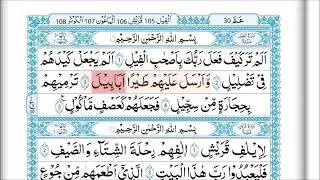 عمّ 30 الفيل 105 قريش 106 الماعون 107 الكوثر 108
بِسْمِ اللَّهِ الرَّحْمَٰنِ الرَّحِيمِ
أَلَمْ تَرَ كَيْفَ فَعَلَ رَبُّكَ بِأَصْحَٰبِ ٱلْفِيلِ ١ أَلَمْ يَجْعَلْ كَيْدَهُمْ
فِي تَضْلِيلٍ ٢ وَأَرْسَلَ عَلَيْهِمْ طَيْرًا أَبَابِيلَ ٣ تَرْمِيهِمْ
بِحِجَارَةٍ مِّن سِجِّيلٍ ٤ فَجَعَلَهُمْ كَعَصْفٍ مَّأْكُولٍ ٥
بِسْمِ اللَّهِ الرَّحْمَٰنِ الرَّحِيمِ
لِإِيلَٰفِ قُرَيْشٍ ١ إِۦلَٰفِهِمْ رِحْلَةَ ٱلشِّتَآءِ وَٱلصَّيْفِ ٢
فَلْيَعْبُدُوا۟ رَبَّ هَٰذَا ٱلْبَيْتِ ٣ ٱلَّذِىٓ أَطْعَمَهُم مِّن جُوعٍ